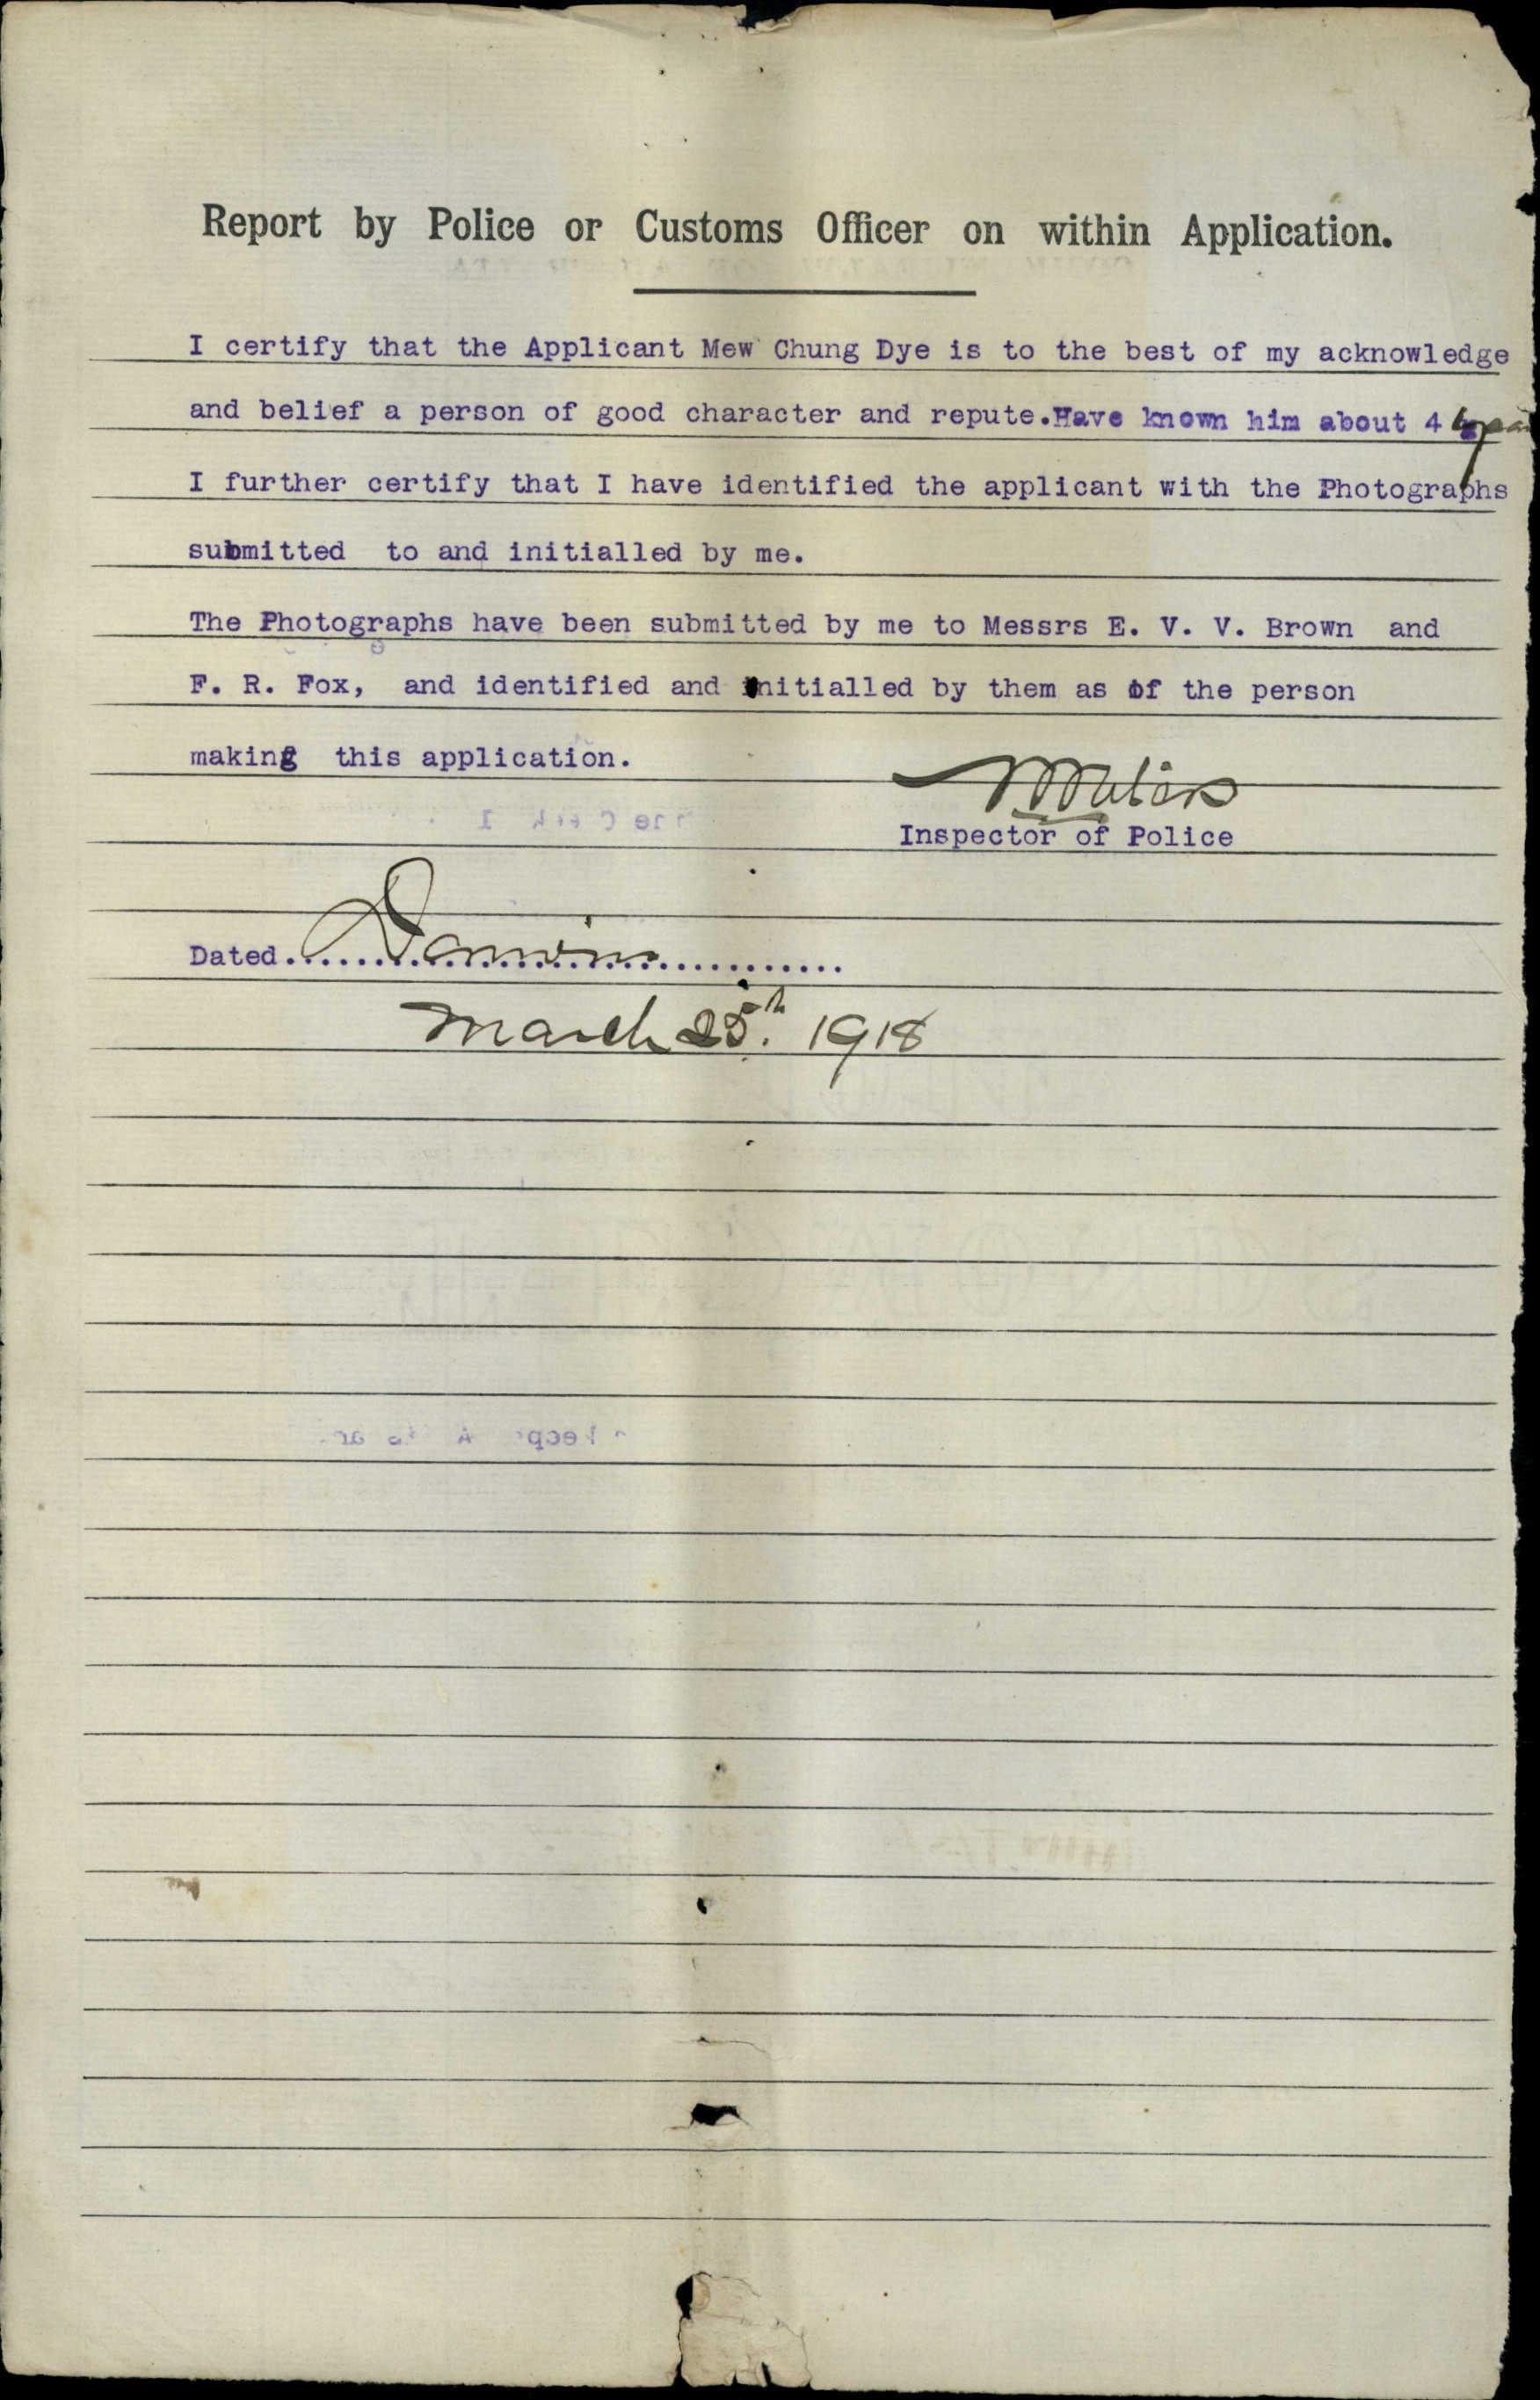 Report by Police or Customs Officer on within Application.
I certify that the Applicant Mew Chung Dye is to the best of my acknowledge
and belief a person of good character and repute.Have known him about 4
I further certify that I have identified the applicant with the Photographs
submitted to and initialled by me.
The Photographs have been submitted by me to Messrs E. V. V. Brown and
F. R. Fox, and identified and initialled by them as of the person
making this application.
Inspector of Police
Dated Darwin
March 25th. 1918